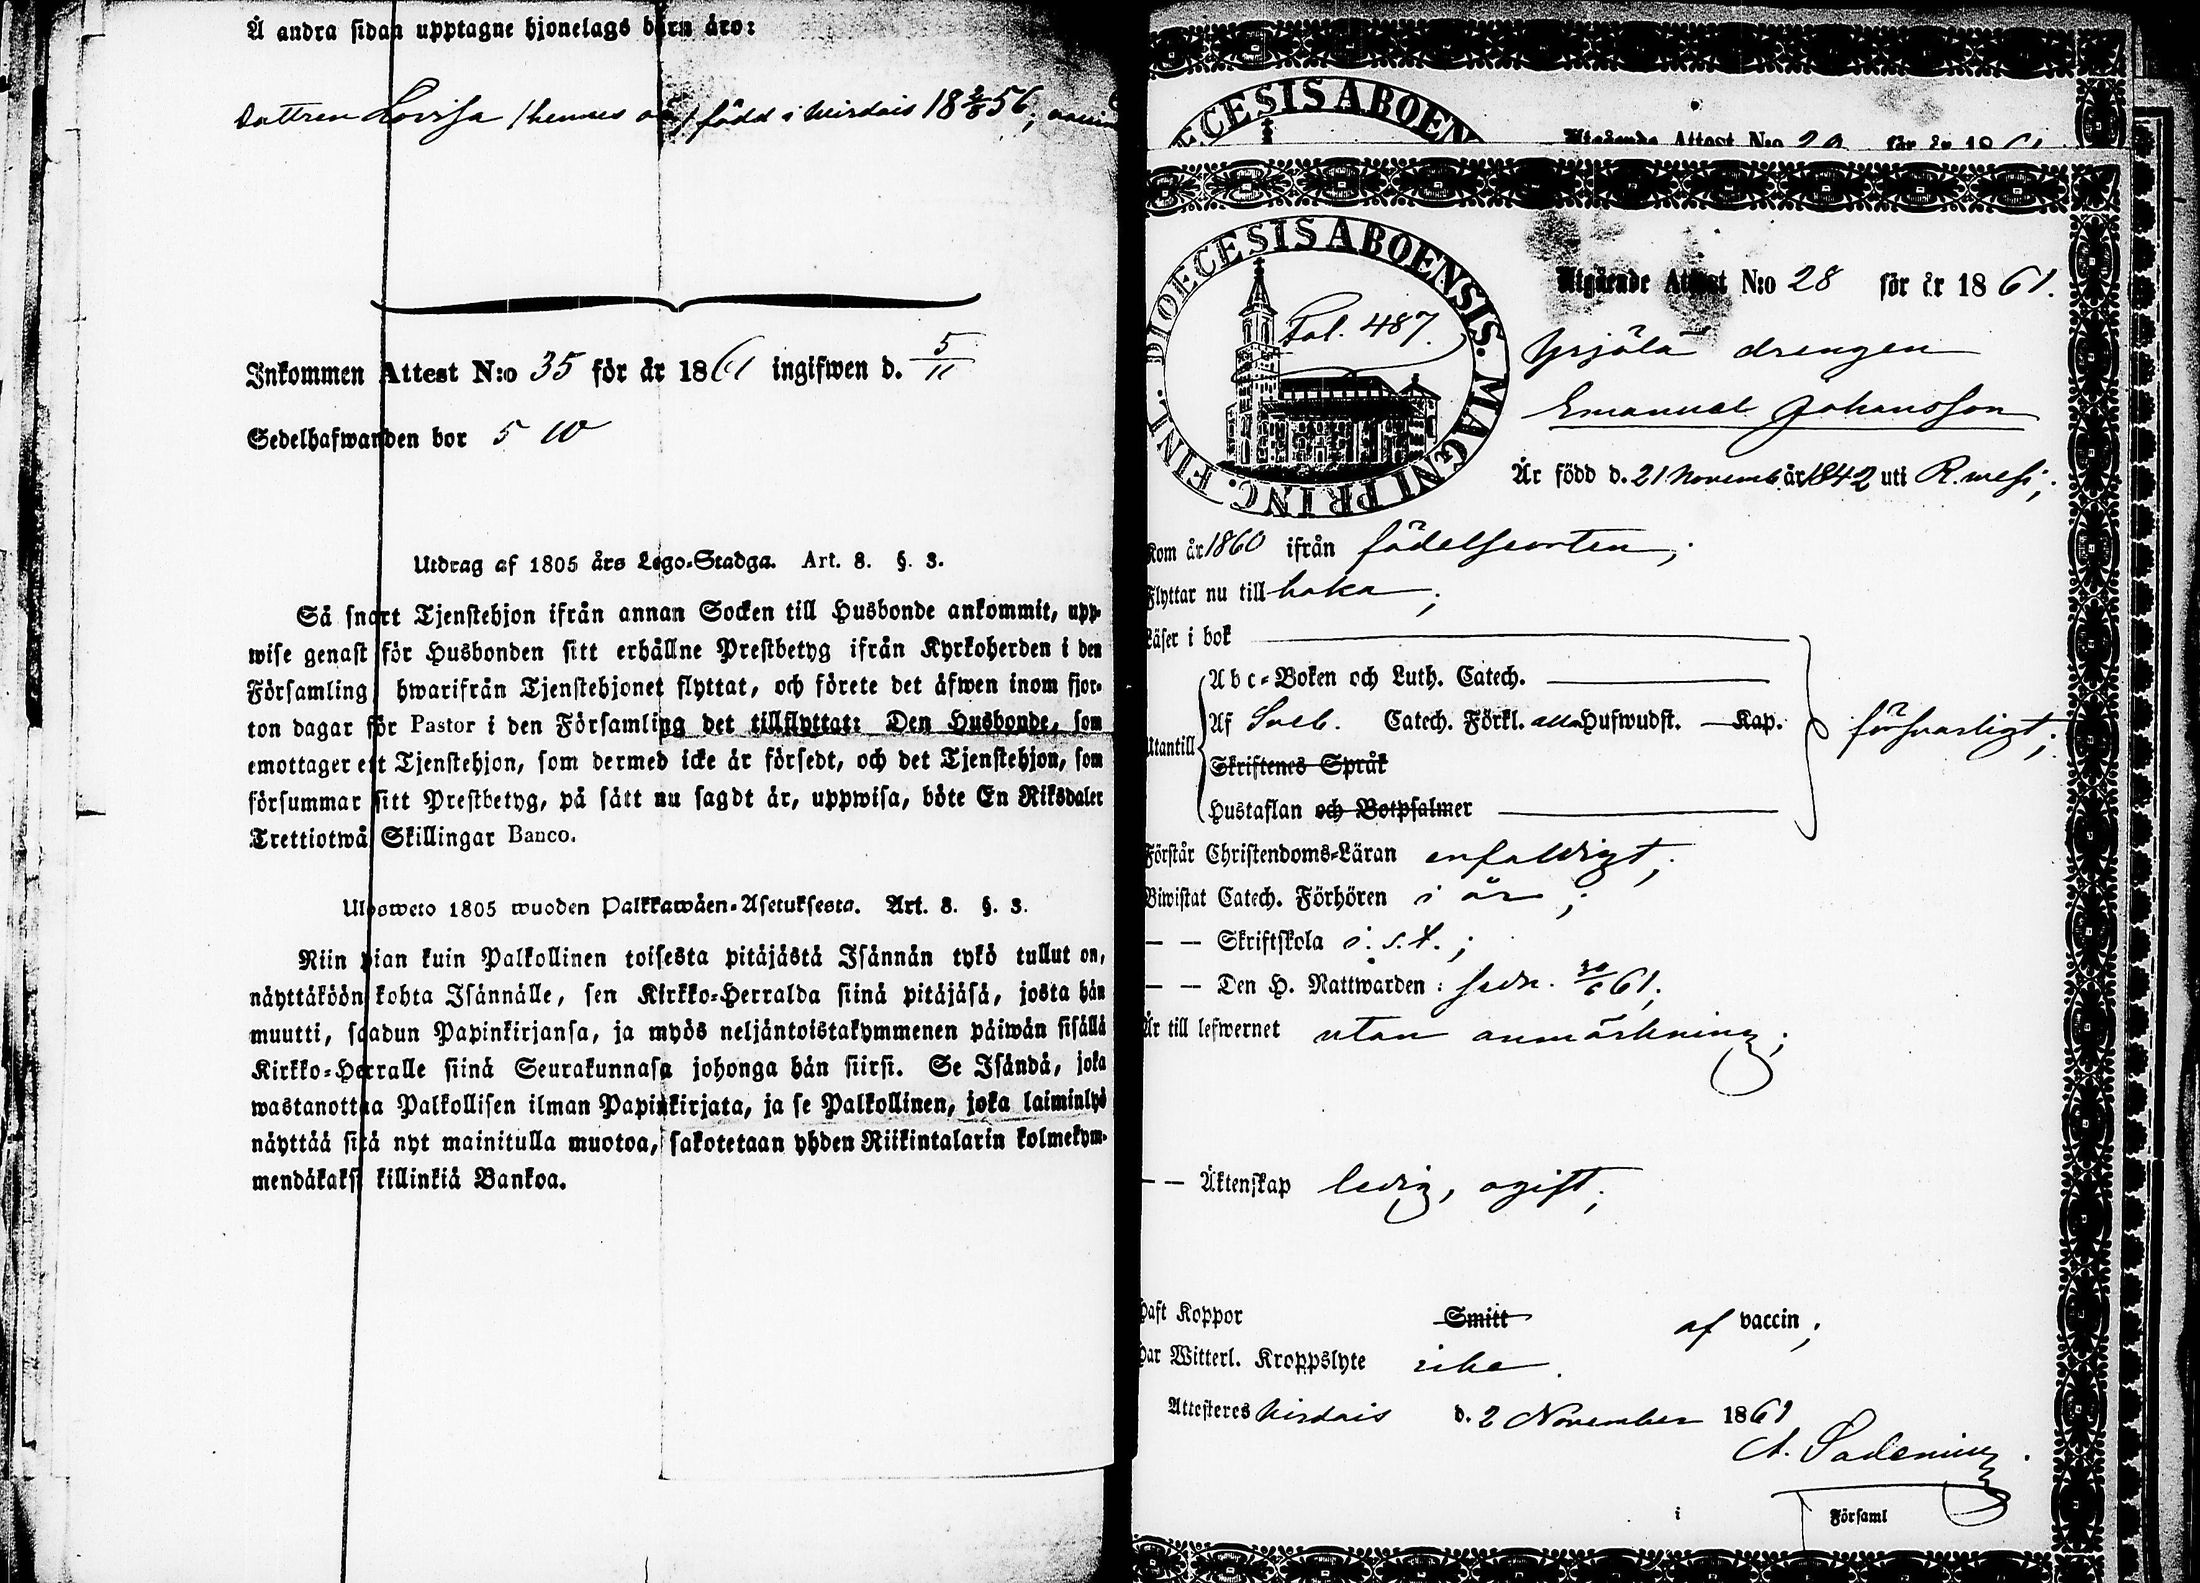 Å andra sidan upptagne hjonelags barn äro:
Dottren Lovisa / hennes oä / född i Wirdois 18 2/8 56;
Inkommen Attest N:o 35 för år 1861 ingifwen d. 5/11
Sedelhafwanden bor 5 W
Utdrag af 1805 års Lego-Stadga. Art. 8. §. 3.
Så snart Tjenstehjon ifrån annan Socken till Husbonde ankommit, upp-
wise genast för Husbonden sitt erhållne Prestbetyg ifrån Kyrkoherden i den
Församling, hwarifrån Tjenstehjonet flyttat, och förete det äfwen inom fjor-
ton dagar för Pastor i den Församling det tillflyttat: Den Husbonde, som
emottager ett Tjenstehjon, som dermed icke är försedt, och det Tjenstehjon, som
försummar sitt Prestbetyg, på sätt nu sagdt är, uppwisa, böte En Riksdaler
Trettiotwå Skillingar Banco.
Ulosweto 1805 wuoden Palkkawäen-Asetuksesta. Art. 8. §. 3.
Niin pian kuin Palkollinen toisesta pitäjästä Isännän tykö tullut on,
näyttäköön kohta Isännälle, sen Kirkko-Herralda siinä pitäjäsä, josta hän
muutti, saadun Papinkirjansa, ja myös neljäntoistakymmenen päiwän sisällä
Kirkko-Herralle siinä Seurakunnasa johonga hän siirsi. Se Isändä, joka
wastanottaa Palkollisen ilman Papinkirjata, ja se Palkollinen, joka laiminlyö
näyttää sitä nyt mainitulla muotoa, sakotetaan yhden Riikintalarin kolmekym-
mendäkaksi killinkiä Bankoa.
ECESIS ABOEN
Utgående Attest N:o 29 för år 1861
DIOECESIS ABOENSIS. MAGNI PRINC. FINL.
Fol. 487.
Utgående Attest N:o 28 för år 1861.
Yrjölä drengen
Emanuel Johansson
Är född d. 21 Novemb. år 1842 uti R.wesi;
Kom år 1860 ifrån födelseorten;
Flyttar nu till
Läser i bok
Abc-Boken och Luth. Catech.
Utantill
Af Sveb. Catech. Förkl. alla Hufwudst. Kap.
försvarligt;
Skriftenes Språk
Hustaflan och Botpsalmer
Förstår Christendoms-Läran enfaldigt;
Biwistat Catech. Förhören i år;
— — Skriftskola i. s. t.;
— — Den H. Nattwarden: sedn. 30/6 61;
Är till lefwernet utan anmärkning;
— — Äktenskap ledig, ogift;
Haft Koppor Smitt af vaccin;
Har Witterl. Kroppslyte icke.
Attesteres Wirdois d. 2 November 1861
A. Sadenius.
i Församl